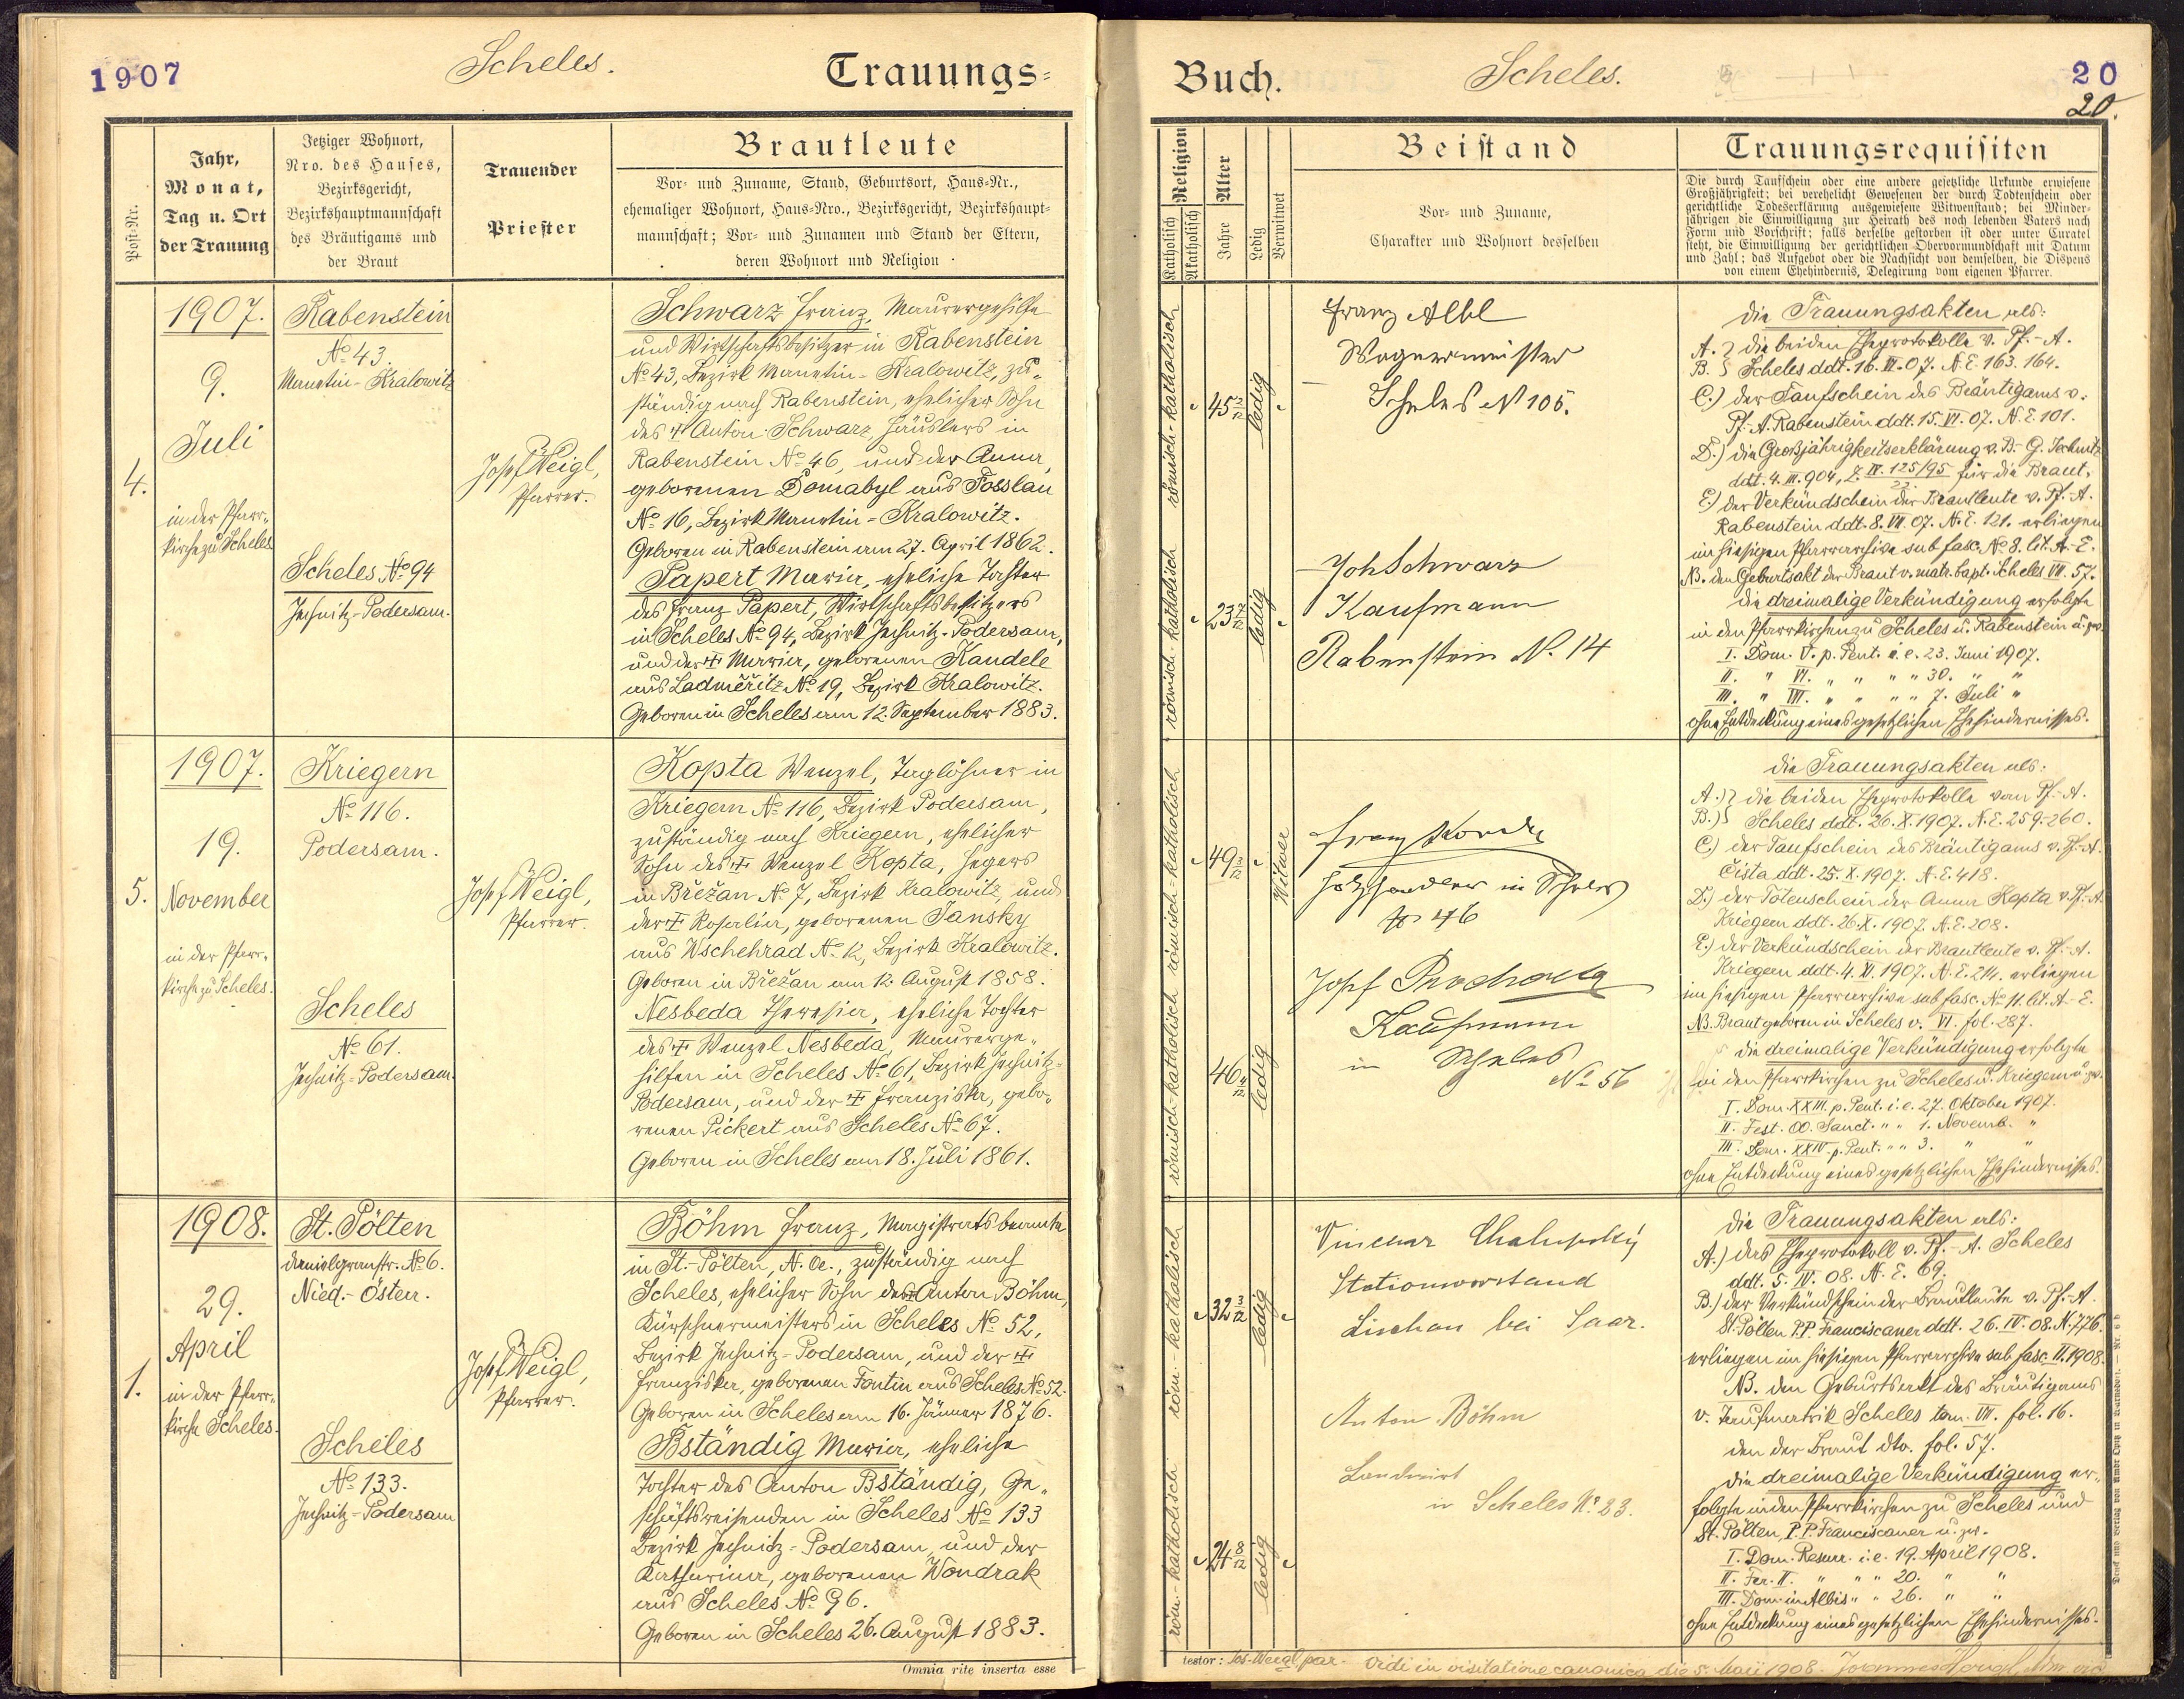 1907
Scheles.
Trauungs-
Post-Nr.
Jahr,
Monat,
Tag u. Ort
der Trauung
Jetziger Wohnort,
Nro. des Hauses,
Bezirksgericht,
Bezirkshauptmannschaft
des Bräutigams und
der Braut
Trauender
Priester
Brautleute
Vor- und Zuname, Stand, Geburtsort, Haus-Nr.,
ehemaliger Wohnort, Haus-Nro., Bezirksgericht, Bezirkshaupt-
mannschaft; Vor- und Zunamen und Stand der Eltern,
deren Wohnort und Religion
4.
1907.
9.
Juli
in der Pfarr-
kirche zu Scheles
Rabenstein
No 43.
Manetin-Kralowitz
Scheles No 94
Jechnitz-Podersam.
Josef Weigl,
Pfarrer.
Schwarz Franz, Maurergehilfe
und Wirtschaftsbesitzer in Rabenstein
No 43, Bezirk Manetin-Kralowitz, zu-
ständig nach Rabenstein, ehelicher Sohn
des † Anton Schwarz, Häuslers in
Rabenstein No 46, und der Anna,
geborenen Domabyl aus Fosslau
No 16, Bezirk Manetin-Kralowitz.
Geboren in Rabenstein am 27. April 1862.
Papert Maria, eheliche Tochter
des Franz Papert, Wirtschaftsbesitzers
in Scheles No 94, Bezirk Jechnitz-Podersam,
und der † Maria, geborenen Kandele
aus Ladměřitz No 19, Bezirk Kralowitz.
Geboren in Scheles am 12. September 1883.
5.
1907.
19.
November
in der Pfarr-
kirche zu Scheles.
Kriegern
No 116.
Podersam.
Scheles
No 61.
Jechnitz-Podersam.
Josef Weigl,
Pfarrer.
Kopta Wenzel, Taglöhner in
Kriegern No 116, Bezirk Podersam,
zuständig nach Kriegern, ehelicher
Sohn des † Wenzel Kopta, Hegers
in Břežan No 7, Bezirk Kralowitz, und
der † Rosalia, geborenen Jansky
aus Wschehrad No 12, Bezirk Kralowitz.
Geboren in Břežan am 12. August 1858.
Nesbeda Theresia, eheliche Tochter
des † Wenzel Nesbeda, Maurerge-
hilfen in Scheles No 61, Bezirk Jechnitz-
Podersam, und der † Franziska, gebo-
renen Pickert aus Scheles No 67.
Geboren in Scheles am 18. Juli 1861.
1.
1908.
29.
April
in der Pfarr-
kirche Scheles.
St. Pölten
Danielgranstr. No 6.
Nied.-Österr.
Scheles
No 133.
Jechnitz-Podersam
Josef Weigl,
Pfarrer.
Böhm Franz, Magistratsbeamte
in St.-Pölten, N. Oe., zuständig nach
Scheles, ehelicher Sohn des Anton Böhm,
Kürschnermeisters in Scheles No 52,
Bezirk Jechnitz-Podersam, und der †
Franziska, geborenen Fontin aus Scheles No 52.
Geboren in Scheles am 16. Jänner 1876.
Bständig Maria, eheliche
Tochter des Anton Bständig, Ge-
schäftsreisenden in Scheles No 133
Bezirk Jechnitz-Podersam, und der
Katharina, geborenen Wondrak
aus Scheles No 96.
Geboren in Scheles 26. August 1883.
Omnia rite inserta esse
Buch.
Scheles.
20
20.
Religion
Katholisch
Akatholisch
Alter
Jahre
Ledig
Verwitwet
Beistand
Vor- und Zuname,
Charakter und Wohnort desselben
Trauungsrequisiten
Die durch Taufschein oder eine andere gesetzliche Urkunde erwiesene
Großjährigkeit; bei verehelicht Gewesenen der durch Todtenschein oder
gerichtliche Todeserklärung ausgewiesene Witwenstand; bei Minder-
jährigen die Einwilligung zur Heirath des noch lebenden Vaters nach
Form und Vorschrift; falls derselbe gestorben ist oder unter Curatel
steht, die Einwilligung der gerichtlichen Obervormundschaft mit Datum
und Zahl; das Aufgebot oder die Nachsicht von demselben, die Dispens
von einem Ehehindernis, Delegirung vom eigenen Pfarrer.
römisch-katholisch
45 2/12
ledig
römisch-katholisch
ledig
Franz Albl
Wagnermeister
Scheles N 105.
Joh Schwarz
Kaufmann
Rabenstein N. 14
Die Trauungsakten als:
A.} die beiden Eheprotokolle v. Pf.-A.
B.} Scheles ddt. 16. VI. 07. N.E. 163. 164.
C.) der Taufschein des Bräutigams v.
Pf.-A. Rabenstein ddt. 15. VI. 07. N.E. 101.
D.) die Großjährigkeitserklärung v. B.-G. Jechnitz
ddt. 4. III. 904, Z. IV. 125/95 für die Braut,
E.) der Verkündschein der Brautleute v. Pf.-A.
Rabenstein ddt. 8. VII. 07. N.E. 121. erliegen
im hiesigen Pfarrarchive sub fasc. No 8. lit. A-E.
NB. den Geburtsakt der Braut v. matr. bapt. Scheles VII. 57.
Die dreimalige Verkündigung erfolgte
in den Pfarrkirchen zu Scheles u. Rabenstein u. zw.
I. Dom. V. p. Pent. i. e. 23. Juni 1907.
II. " VI. " " " " 30. " "
III. " VII. " " " " 7. Juli "
ohne Entdeckung eines gesetzlichen Ehehindernisses.
römisch-katholisch
49 3/12
Witwer
römisch-katholisch
46 4/12
ledig
Franz
Holzhändler in Scheles
No 46
Josef Prochaska
Kaufmann
in Scheles
No 56
Die Trauungsakten als:
A.)} die beiden Eheprotokolle vom Pf.-A.
B.)} Scheles ddt. 26. X. 1907. N.E. 259-260.
C.) der Taufschein des Bräutigams v. Pf.-A.
Čista ddt. 25. X. 1907. N.E. 418.
D.) der Totenschein der Anna Kopta v. Pf.-A.
Kriegern ddt. 26. X. 1907. N.E. 208.
E.) der Verkündschein der Brautleute v. Pf.-A.
Kriegern ddt. 4. XI. 1907. N.E. 214. erliegen
im hiesigen Pfarrarchive sub fasc. No 11. lit. A-E.
NB. Braut geboren in Scheles v. VI. fol. 287.
Die dreimalige Verkündigung erfolgte
in den Pfarrkirchen zu Scheles u. Kriegern u. zw.
I. Dom. XXIII. p. Pent. i. e. 27. Oktober 1907.
II. Fest. OO. Sanct. " " 1. Novemb. "
III. Dom. XXIV. p. Pent. " " 3. " "
ohne Entdeckung eines gesetzlichen Ehehindernisses.
röm.-katholisch
32 3/12
ledig
röm.-katholisch
24 8/12
ledig
Vincenz Chalupský
Stationsvorstand
Lischau bei Saar.
Anton Böhm
Landwirt
in Scheles No 83.
Die Trauungsakten als:
A.) das Eheprotokoll v. Pf.-A. Scheles
ddt. 5. IV. 08. N.E. 69.
B.) der Verkündschein der Brautleute v. Pf.-A.
St. Pölten P.P. Franciscaner ddt. 26. IV. 08. N. 776.
erliegen im hiesigen Pfarrarchive sub fasc. II. 1908.
NB. den Geburtsakt des Bräutigams
v. Taufmatrik Scheles tom. VII. fol. 16.
den der Braut dto. fol. 57.
Die dreimalige Verkündigung er-
folgte in den Pfarrkirchen zu Scheles und
St. Pölten, P.P. Franciscaner u. zw.
I. Dom. Resurr. i. e. 19. April 1908.
II. Fer. II. " " " 20. " "
III. Dom. in Albis " " 26. " "
ohne Entdeckung eines gesetzlichen Ehehindernisses.
testor: Jos. Weigl, par. Vidi in visitatione canonica die 5. Maii 1908.